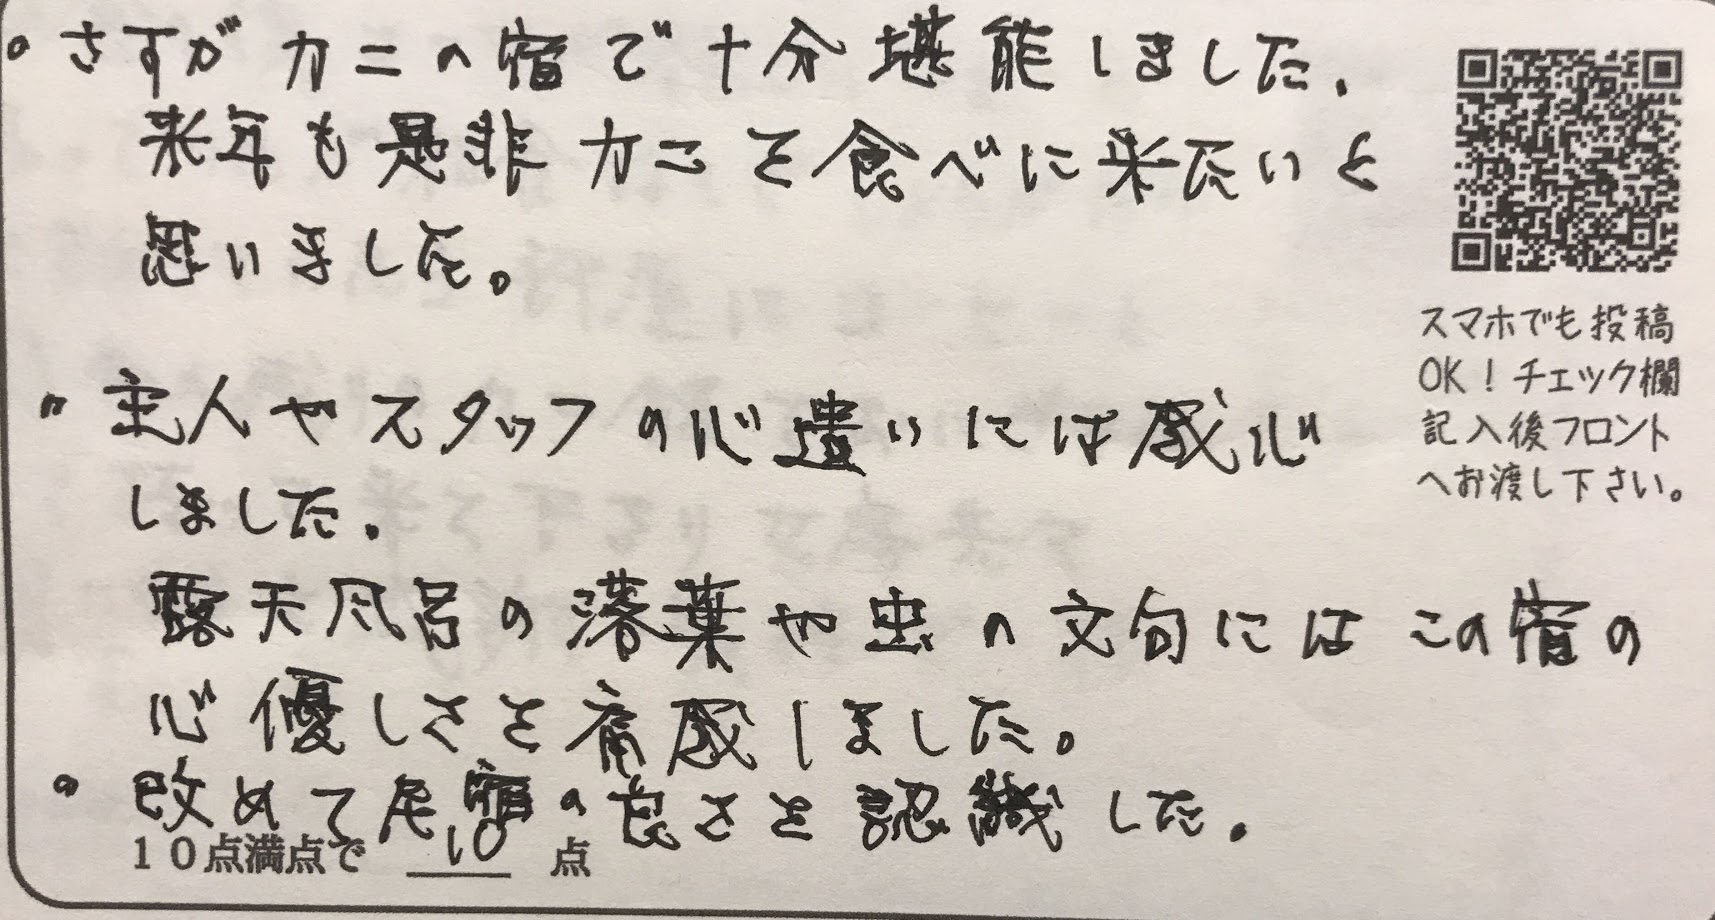 。さすがカニの宿で十分堪能しました。
来年も是非カニを食べに来たいと
思いました。
スマホでも投稿
OK！チェック欄
記入後フロント
へお渡し下さい。
〃主人やスタッフの心遣いには感心
しました。
露天風呂の落葉や虫の文句にはこの宿の
心優しさを痛感しました。
。改めて民宿の良さを認識した。
10点満点で 10 点